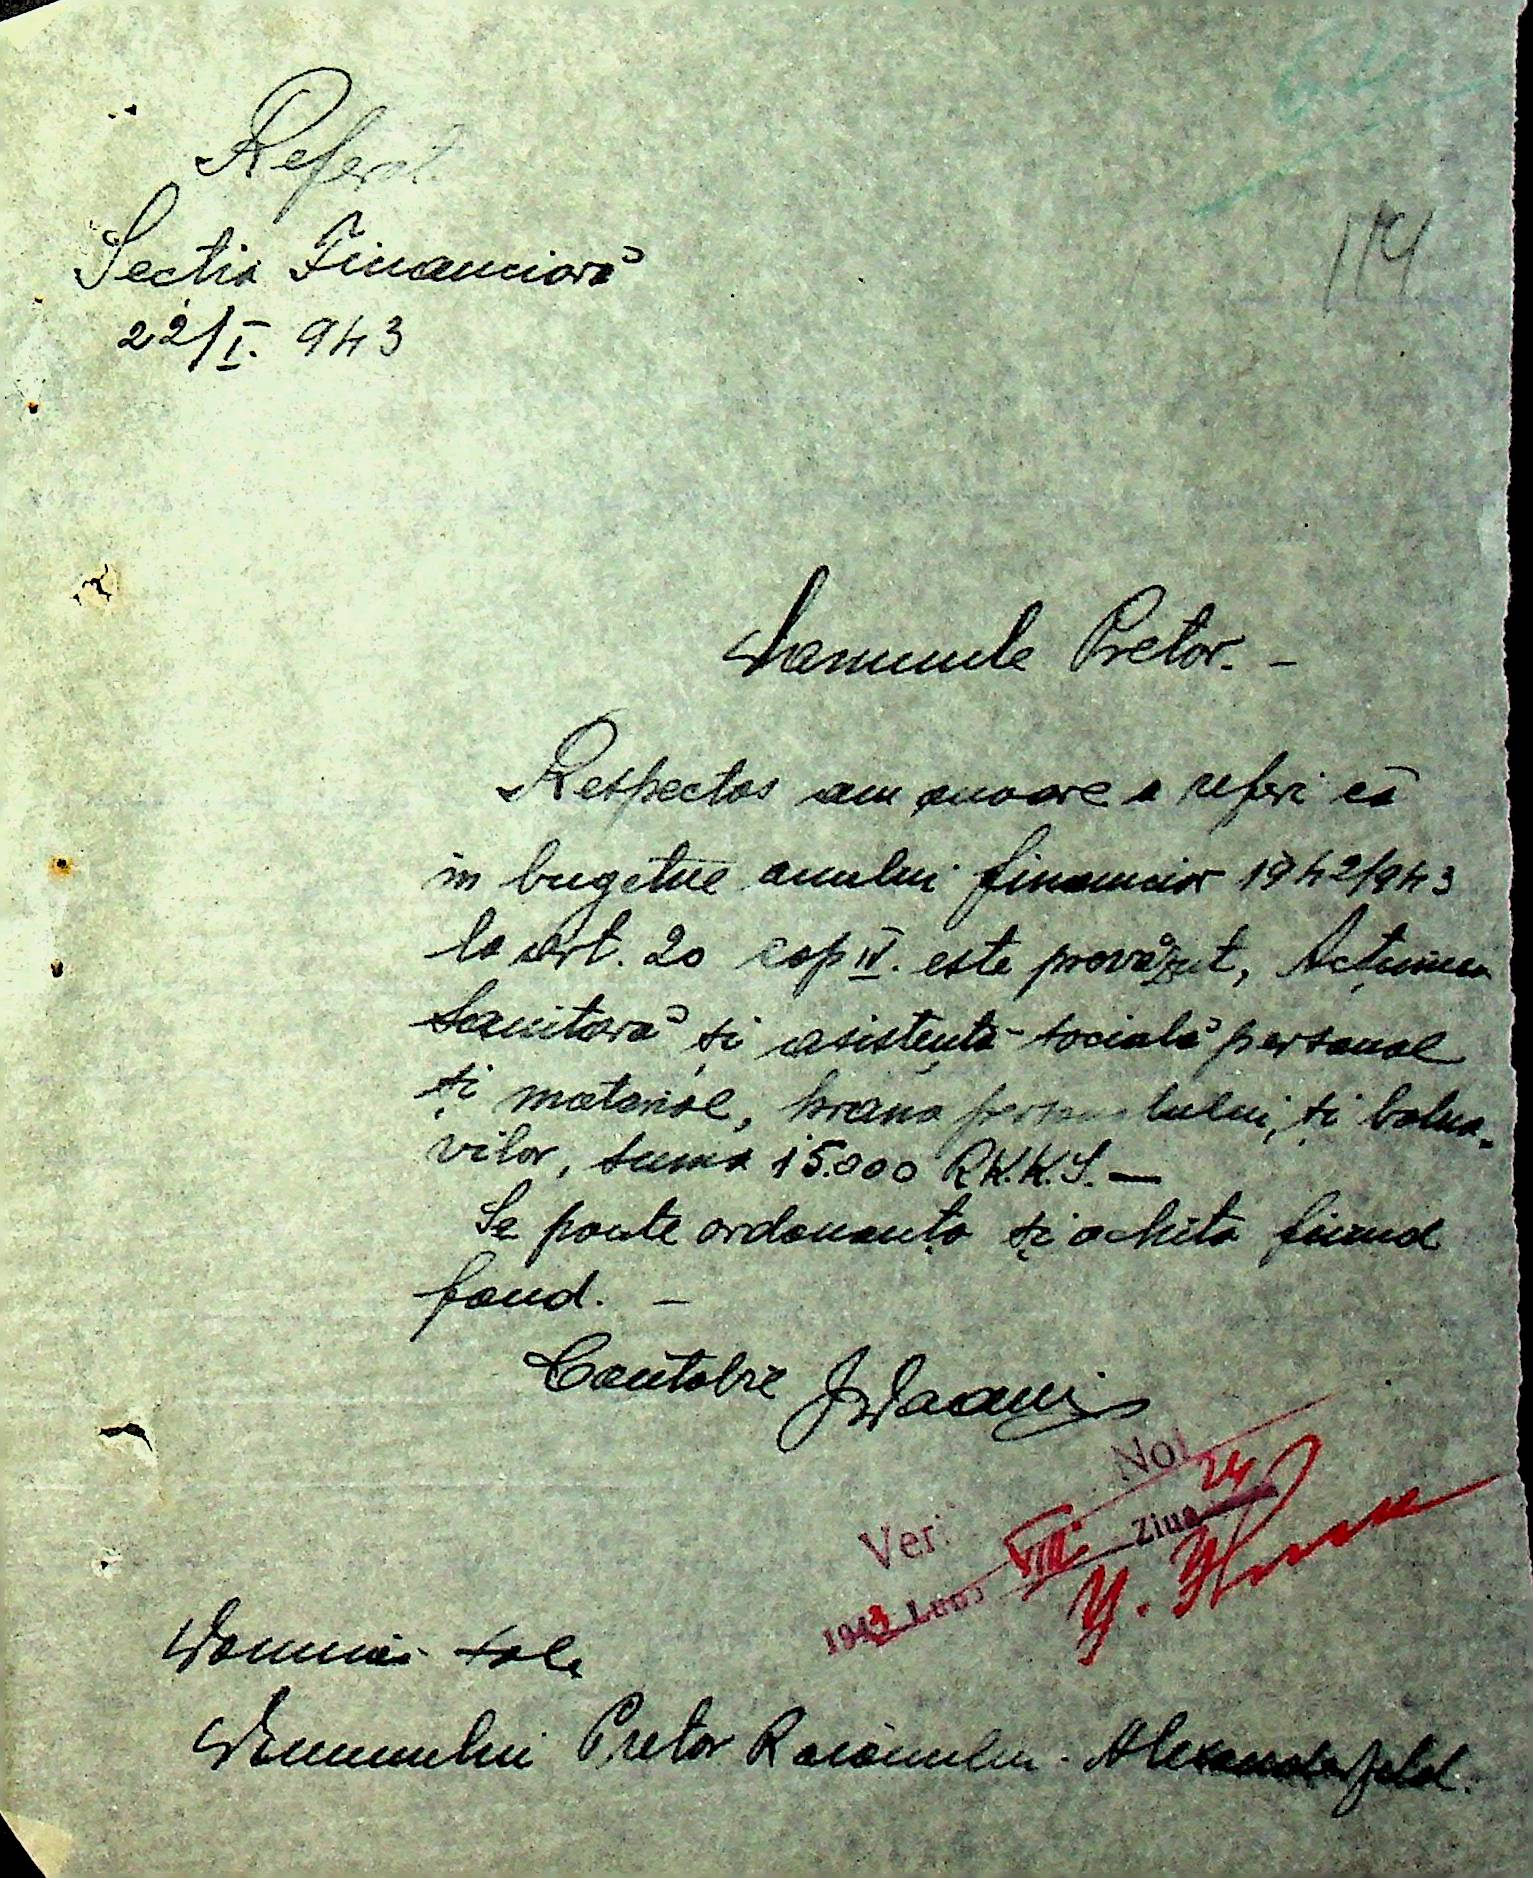 114
Referat.
Secția Financiară
22/I. 943
Domnule Pretor. -
Respectos am onoare a referi că
in bugetul anului financiar 1942/943
la art. 20 cap IV. este provăzut, Acțiunea
Sanitară și asistența socială personal
și material, hrana personalului, și bolna-
vilor, suma 15.000 R.K.K.S. —
Se poate ordonanța și achita fiind
fond. —
Contabil
Ver.
1943 Luna VIII. Ziua 24
Domniei sale
Domnului Pretor Raionului - Alexanderfeld.